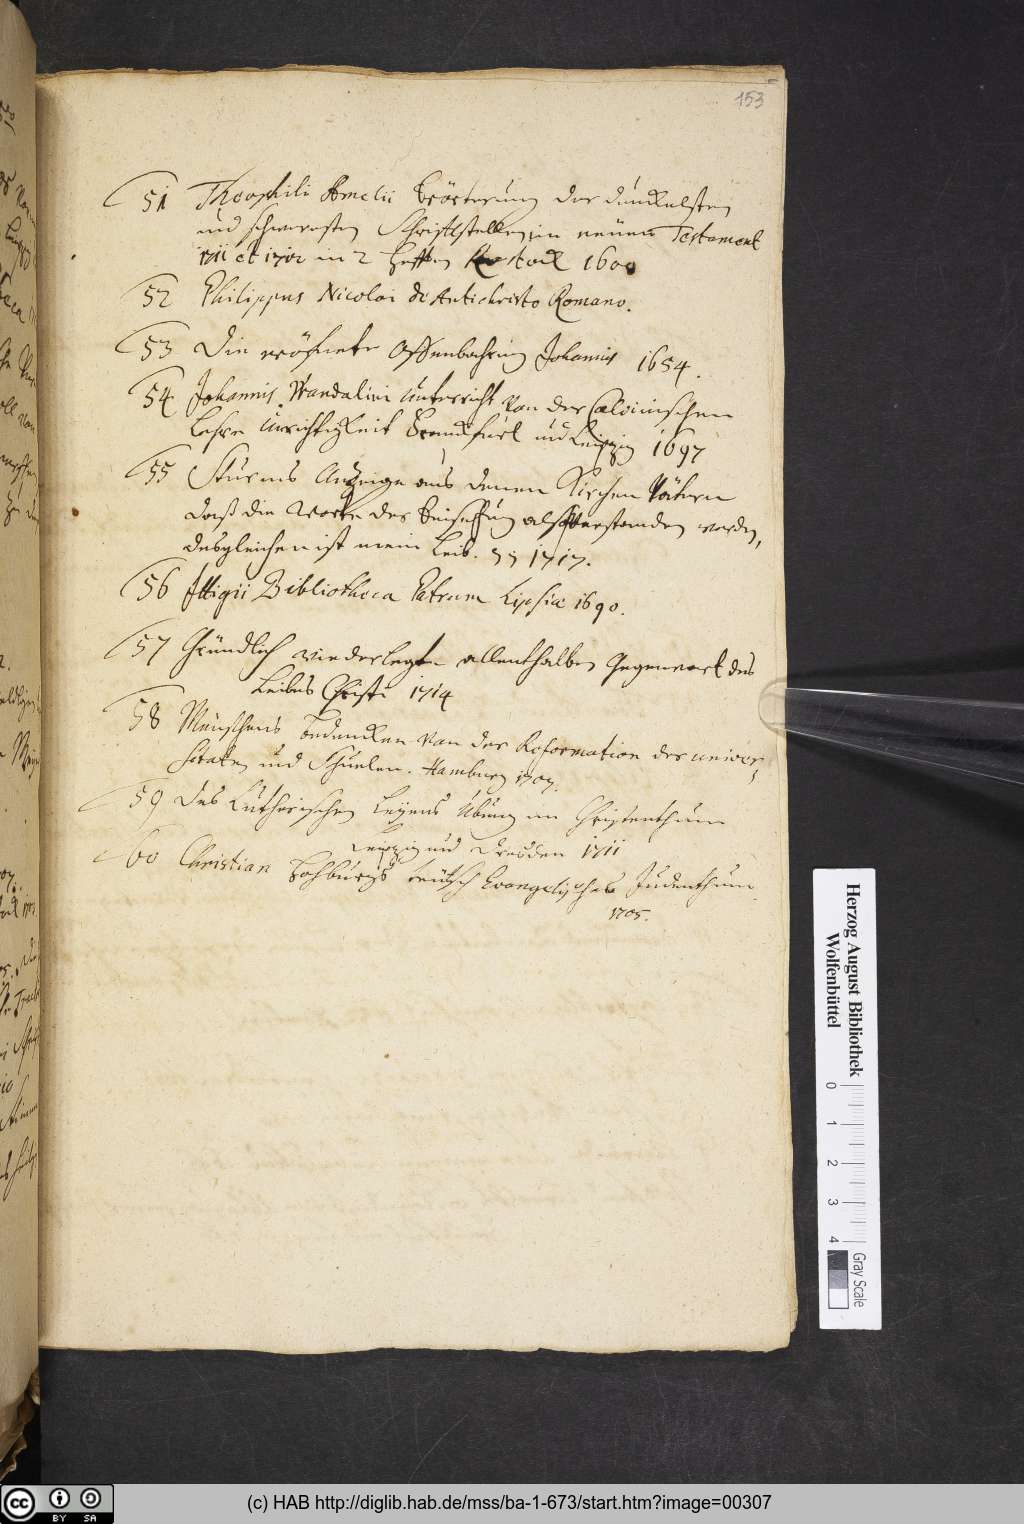 153
51 Theophili Amelii Erörterung der dunckelsten
und schweresten Schrifftstellen im neüen Testament
1711 et 1702 in 2 Hefften Rostock 1600
52 Philippus Nicolai de Antichristo Romano.
53 Die eröfnete Offenbahrung Johannis 1654.
54 Johannis Wandalini Unterricht Von der Calvinischen
Lehre Unrichtigkeit Franckfurt und Leipzig 1697
55 Sturms Anzeige aus denen Kirchen Vätern
daß die Worte der verstanden werden,
desgleichen ist mein Leib. 1717.
56 Ittigii Bibliotheca Patrum Lipsiæ 1690.
57 Gründlich wiederlegte allenthalben Gegenwart des
Leibes Christi 1714
58 Bedencken Von der Reformation der univer,
sitäten und Schuelen. Hamburg 1707.
59 Des Lutherischen Leyens Übung im Christenthum
Leipzig und Dresden 1711
60 Christian Hohburgs teütsch Evangelisches Judenthum
1705.
Herzog August Bibliothek
Wolfenbüttel
0 1 2 3 4
Gray Scale
cc BY SA
(c) HAB http://diglib.hab.de/mss/ba-1-673/start.htm?image=00307